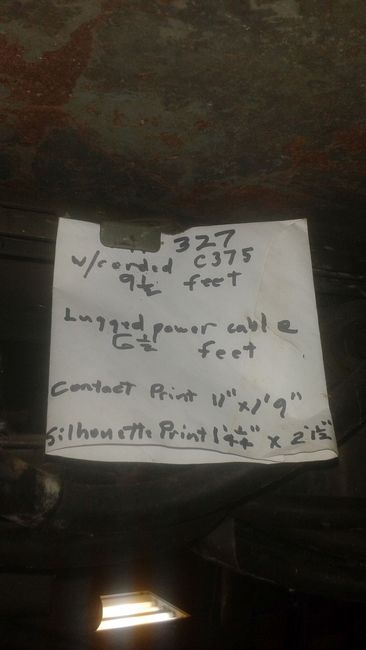 327
w/corded C375
9½ feet
Lugged power cable
6½ feet
Contact Print 11" x 1' 9"
Silhouette Print 1' 4¼" x 2' 1½"